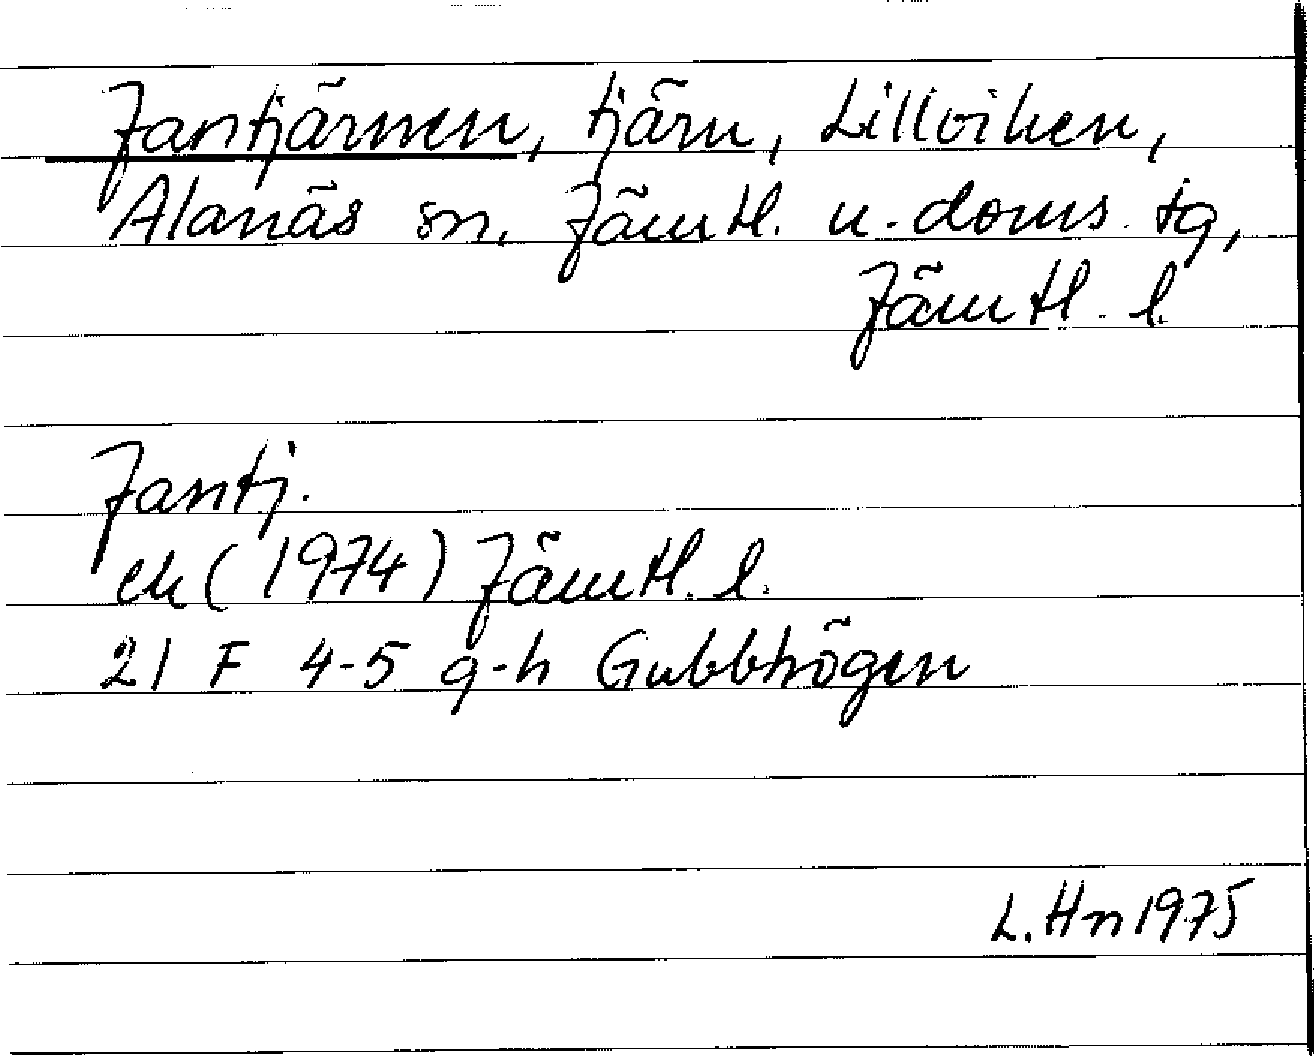 Jantjärnen, tjärn, Lillviken,
Alanäs sn, Jämtl. n. doms. tg,
Jämtl. l.
Jantj.
ek (1974) Jämtl. l.
21 F 4-5 g-h Gubbhögen
L. Hn 1975